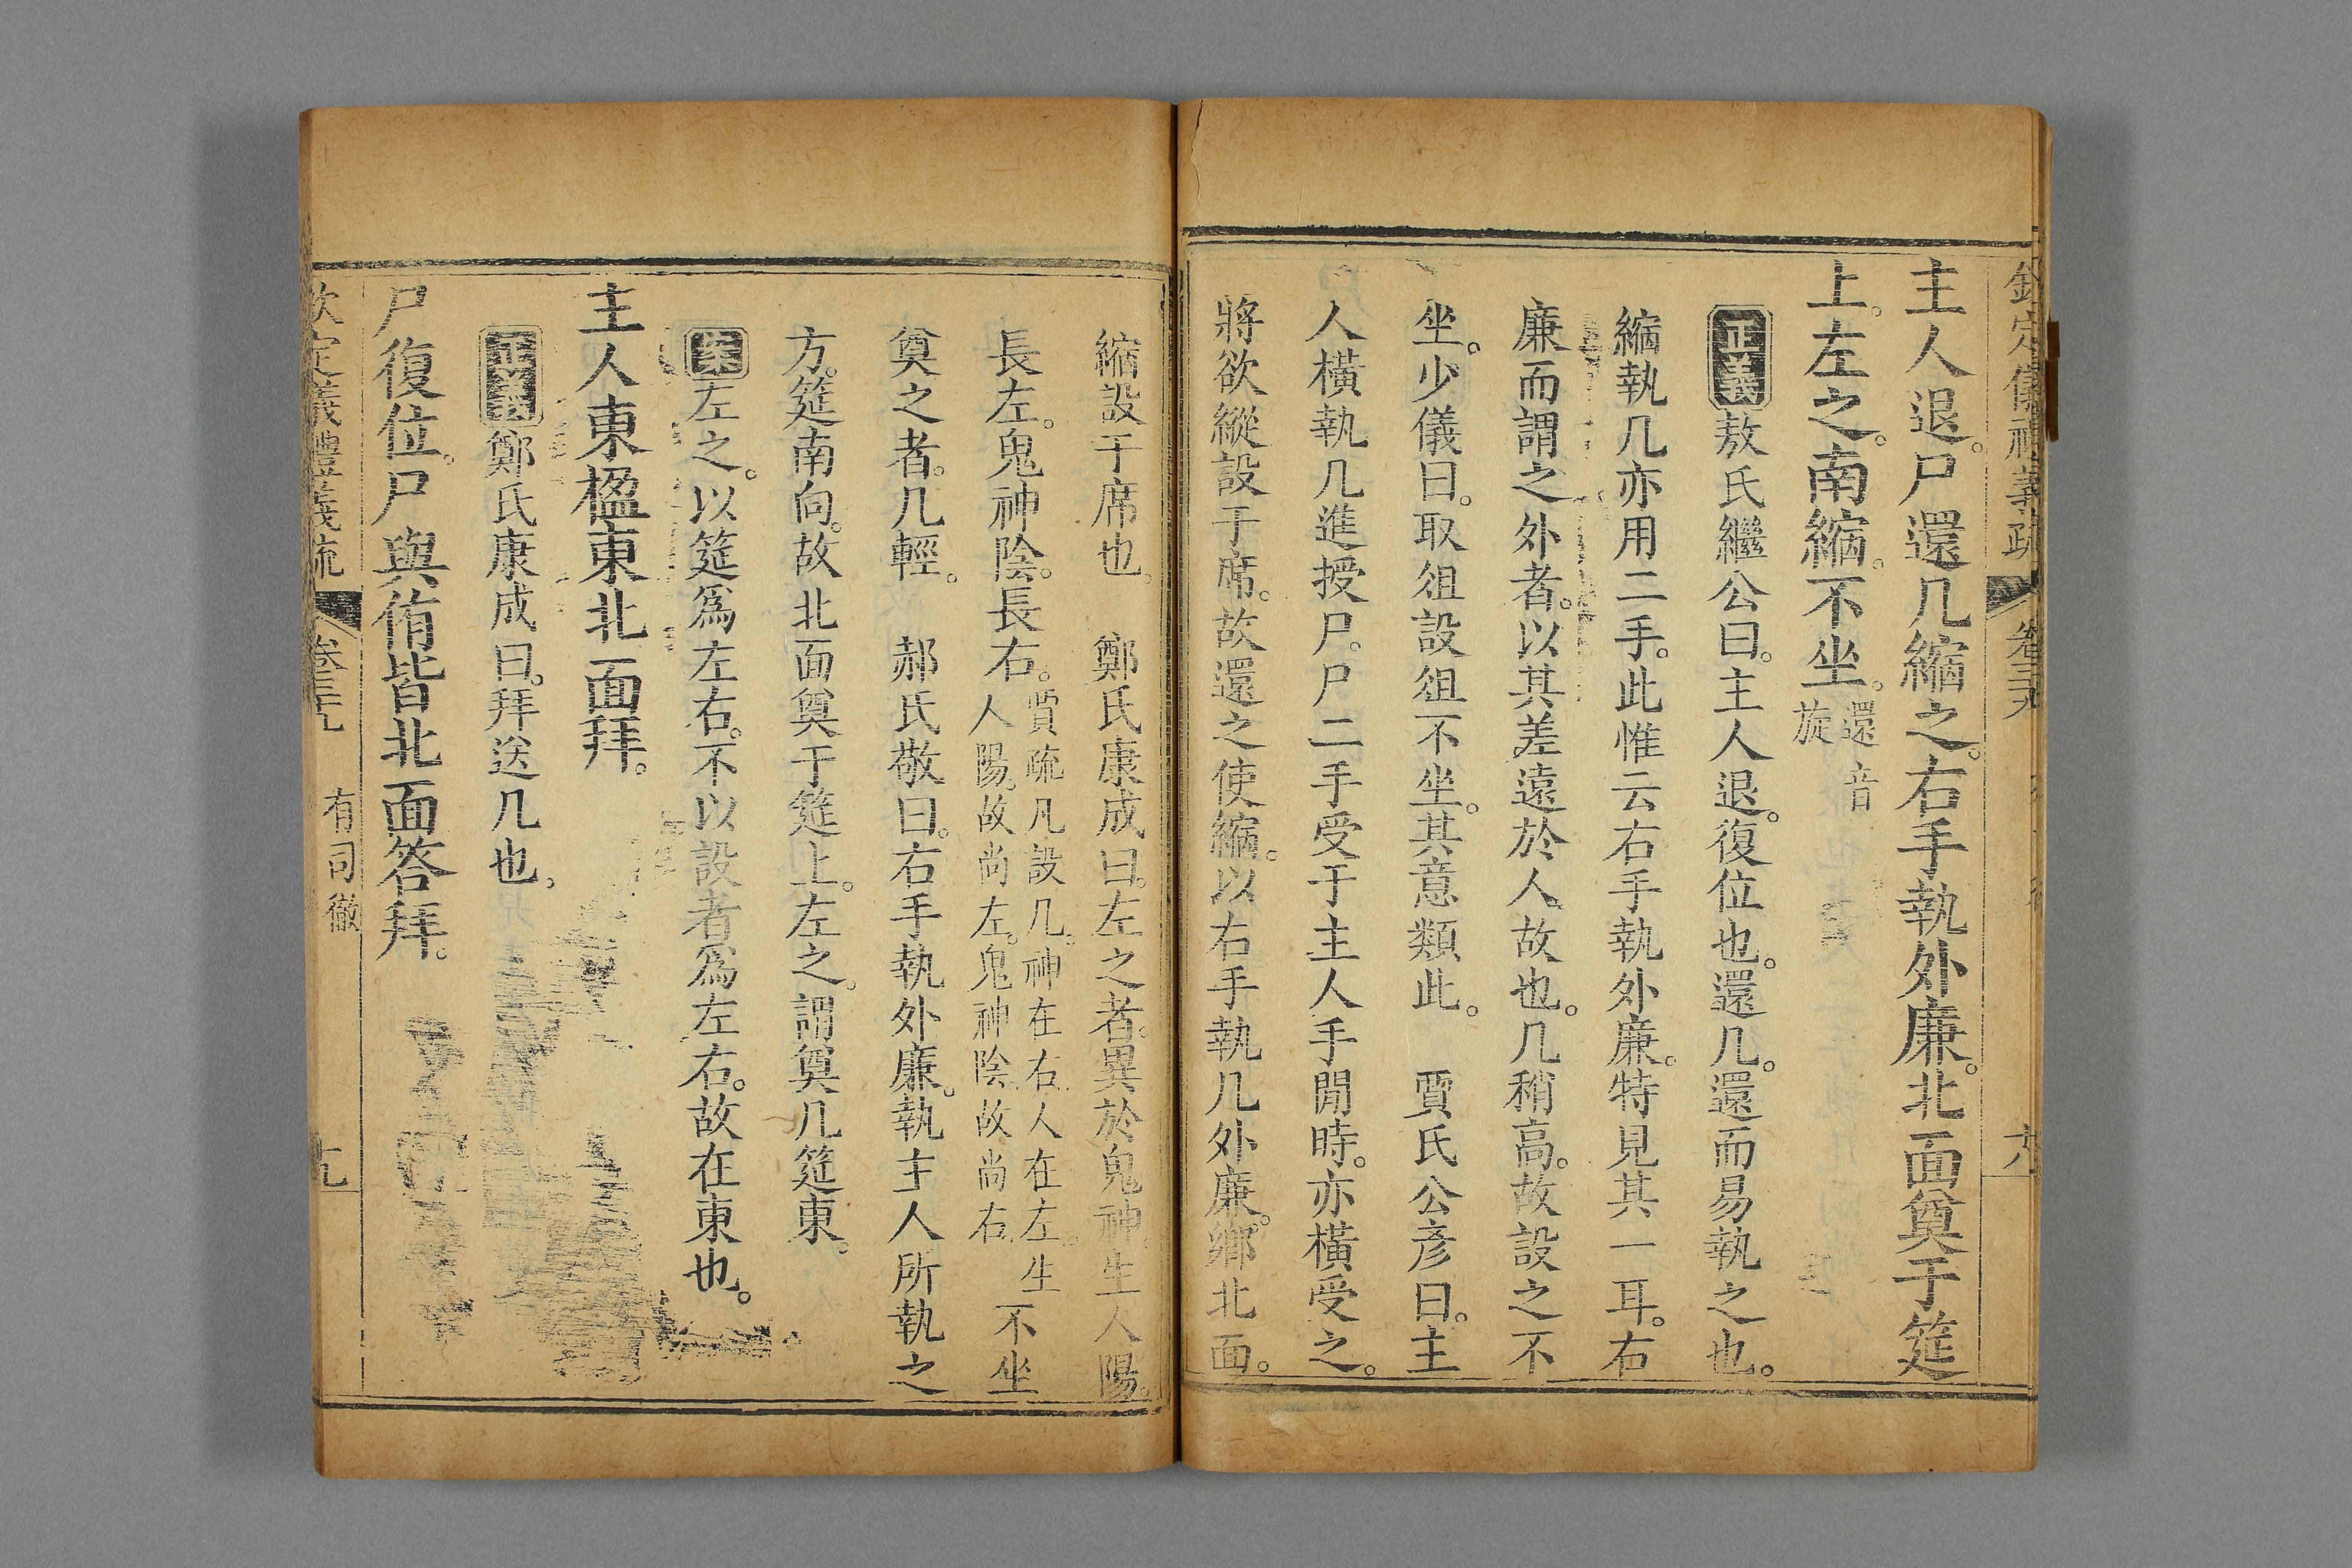 欽定儀禮義疏 卷三十九
主人退。尸還几縮之。右手執外廉。北面奠于筵
上。左之。南縮。不坐。還音旋
正義敖氏繼公曰。主人退。復位也。還几。還而易執之也。
縮執几亦用二手。此惟云右手執外廉。特見其一耳。右
廉而謂之外者。以其差遠於人故也。几稍高。故設之不
坐。少儀曰。取俎設俎不坐。其意類此。 賈氏公彥曰。主
人橫執几進授尸。尸二手受于主人手閒時。亦橫受之。
將欲縱設于席。故還之使縮。以右手執几外廉。鄉北面。
縮設于席也。 鄭氏康成曰。左之者。異於鬼神。生人陽。
長左。鬼神陰。長右。賈疏凡設几。神在右。人在左。生人陽。故尚左。鬼神陰。故尚右。不坐
奠之者。几輕。 郝氏敬曰。右手執外廉。執主人所執之
方。筵南向。故北面奠于筵上。左之。謂奠几筵東。
案左之。以筵爲左右。不以設者爲左右。故在東也。
主人東楹東北面拜。
正義鄭氏康成曰。拜送几也。
尸復位。尸與侑皆北面答拜。
欽定儀禮義疏 卷三十九 有司徹 十九